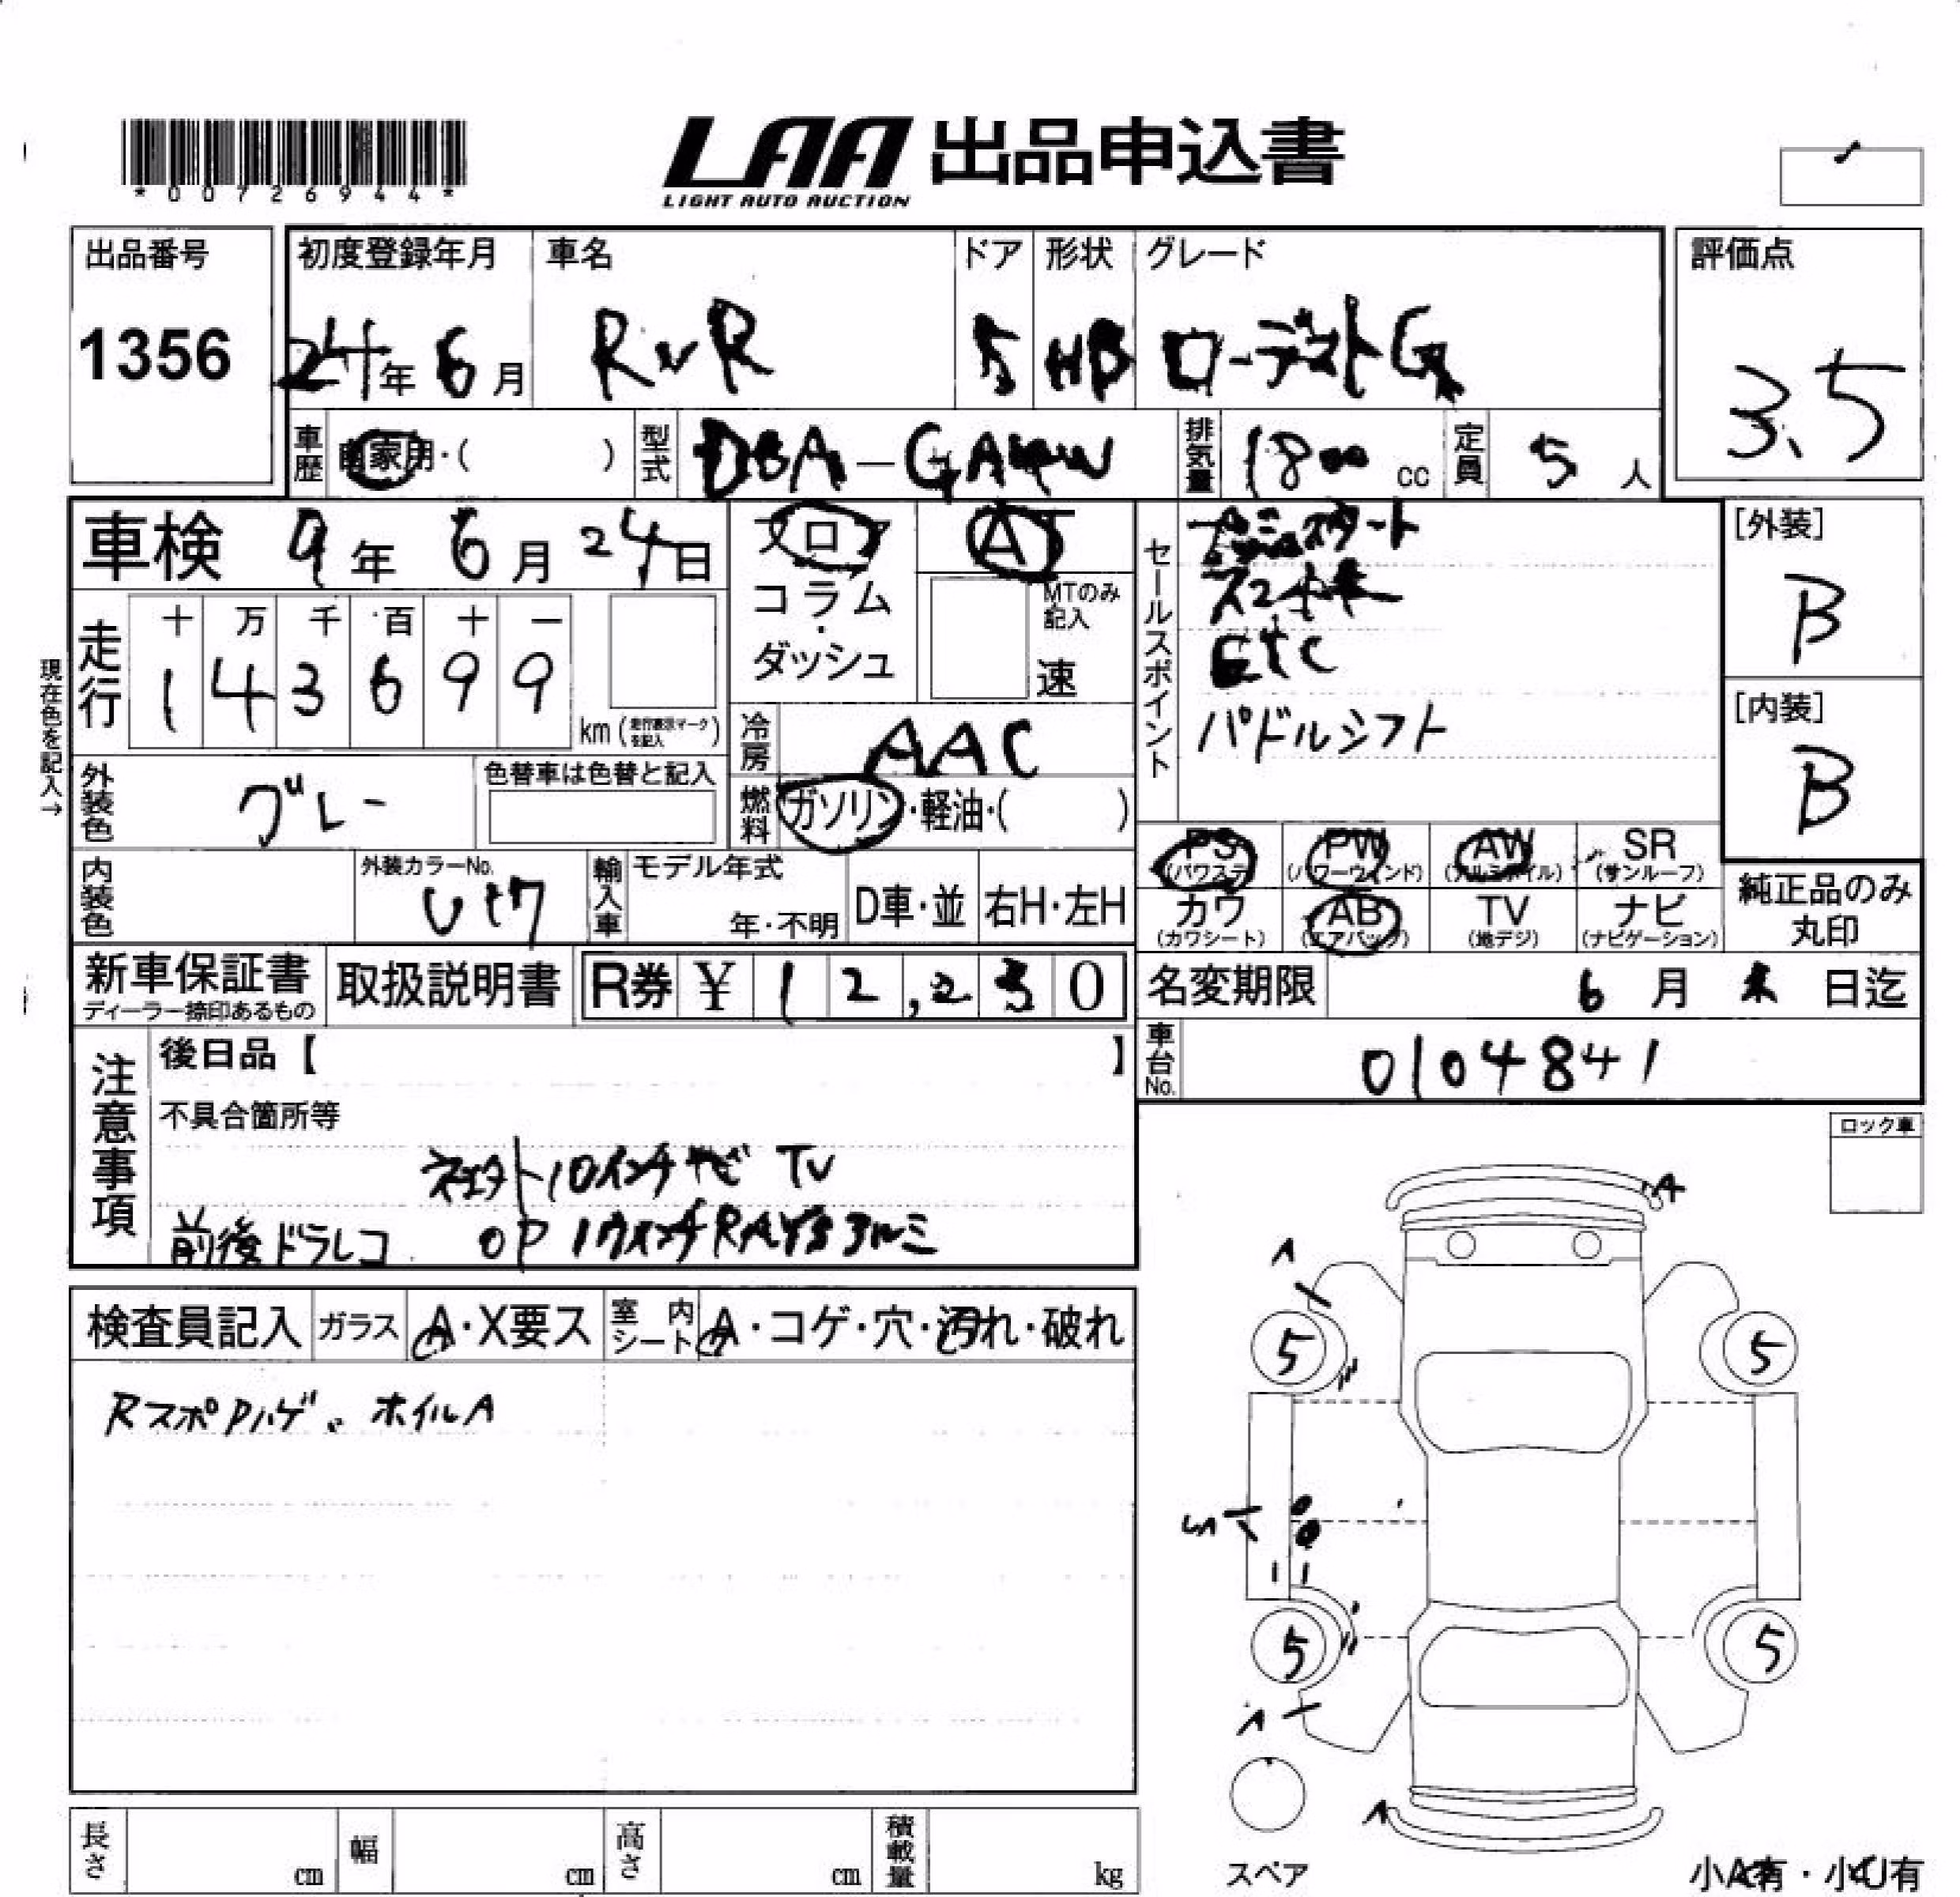 *00726944*
LAA 出品申込書
LIGHT AUTO AUCTION
出品番号
1356
初度登録年月
24年 6月
車名
RVR
ドア
5
形状
HB
グレード
ローデストG
評価点
3.5
車歴
自家用・( )
型式
DBA-GA4W
排気量
1800 cc
定員
5 人
車検 9年 6月 24日
フロア
コラム・
ダッシュ
AT
MTのみ記入
速
セールスポイント
プッシュスタート
スマートキー
ETC
パドルシフト
[外装]
B
[内装]
B
現在色を記入→
走行
十 万 千 百 十 一
1 4 3 6 9 9
km(走行表示マークを記入)
冷房
AAC
外装色
グレー
色替車は色替と記入
燃料
ガソリン・軽油・( )
内装色
外装カラーNo.
U17
輸入車
モデル年式
年・不明
D車・並
右H・左H
PS
(パワステ)
PW
(パワーウィンド)
AW
(アルミホイル)
SR
(サンルーフ)
カワ
(カワシート)
AB
(エアバック)
TV
(地デジ)
ナビ
(ナビゲーション)
純正品のみ
丸印
新車保証書
ディーラー捺印あるもの
取扱説明書
R券 ¥ 12,230
名変期限
6月 末日迄
車台No.
0104841
注意事項
後日品【 】
不具合箇所等
10インチナビ TV
前後ドラレコ OP 17インチRAYSアルミ
ロック車
検査員記入
ガラス
A・X要ス
室内シート
A・コゲ・穴・汚れ・破れ
RスポPハゲ、ホイルA
A
A
5
5
5
5
A
A
スペア
長さ
cm
幅
cm
高さ
cm
積載量
kg
小A有・小U有